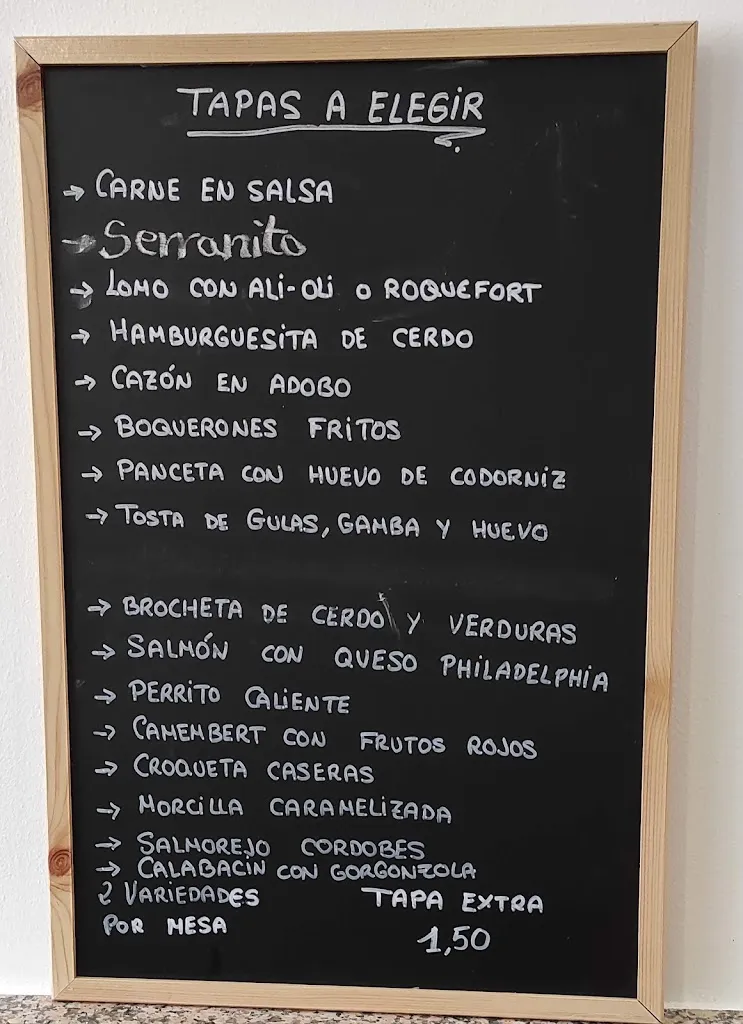 TAPAS A ELEGIR
→ CARNE EN SALSA
→ Serranito
→ LOMO CON ALI-OLI O ROQUEFORT
→ HAMBURGUESITA DE CERDO
→ CAZÓN EN ADOBO
→ BOQUERONES FRITOS
→ PANCETA CON HUEVO DE CODORNIZ
→ TOSTA DE GULAS, GAMBA Y HUEVO
→ BROCHETA DE CERDO Y VERDURAS
→ SALMÓN CON QUESO PHILADELPHIA
→ PERRITO CALIENTE
→ CAMEMBERT CON FRUTOS ROJOS
→ CROQUETA CASERAS
→ MORCILLA CARAMELIZADA
→ SALMOREJO CORDOBES
→ CALABACIN CON GORGONZOLA
2 VARIEDADES
POR MESA
TAPA EXTRA
1,50